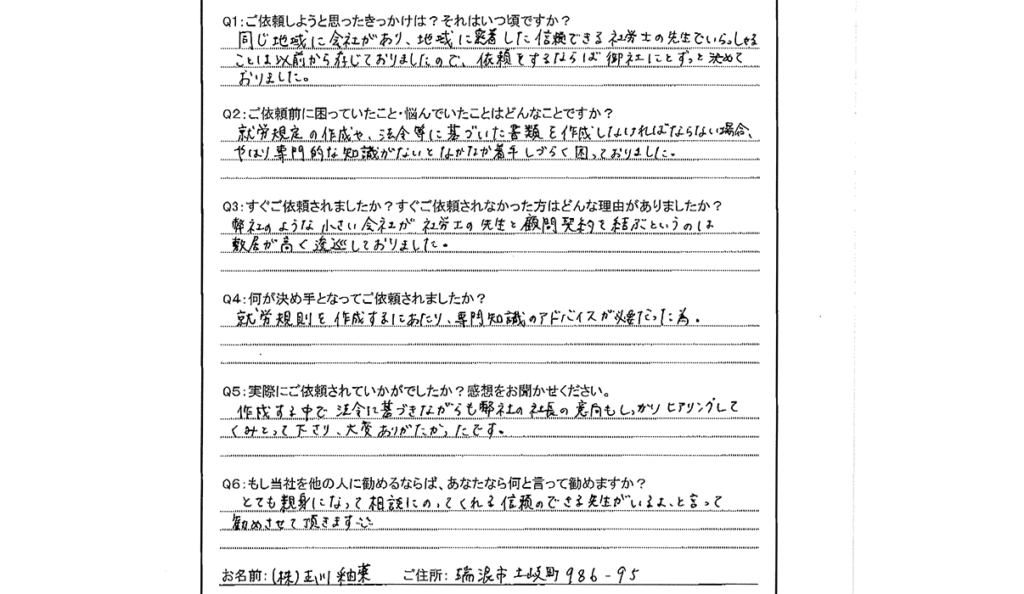 Q1:ご依頼しようと思ったきっかけは？それはいつ頃ですか？
同じ地域に会社があり、地域に密着した信頼できる社労士の先生でいらっしゃる
ことは以前から存じておりましたので、依頼をするならば御社にとずっと決めて
おりました。
Q2:ご依頼前に困っていたこと・悩んでいたことはどんなことですか？
就労規定の作成や、法令等に基づいた書類を作成しなければならない場合、
やはり専門的な知識がないとなかなか着手しづらく困っておりました。
Q3:すぐご依頼されましたか？すぐご依頼されなかった方はどんな理由がありましたか？
弊社のような小さい会社が社労士の先生と顧問契約を結ぶというのは
敷居が高く逡巡しておりました。
Q4:何が決め手となってご依頼されましたか？
就労規則を作成するにあたり、専門知識のアドバイスが必要だった為。
Q5:実際にご依頼されていかがでしたか？感想をお聞かせください。
作成する中で法令に基づきながらも弊社の社長の意向もしっかりヒアリングして
くみとって下さり、大変ありがたかったです。
Q6:もし当社を他の人に勧めるならば、あなたなら何と言って勧めますか？
とても親身になって相談にのってくれる信頼のできる先生がいるよ、と言って
勧めさせて頂きます
お名前:(株)玉川釉薬 ご住所:瑞浪市土岐町986-95